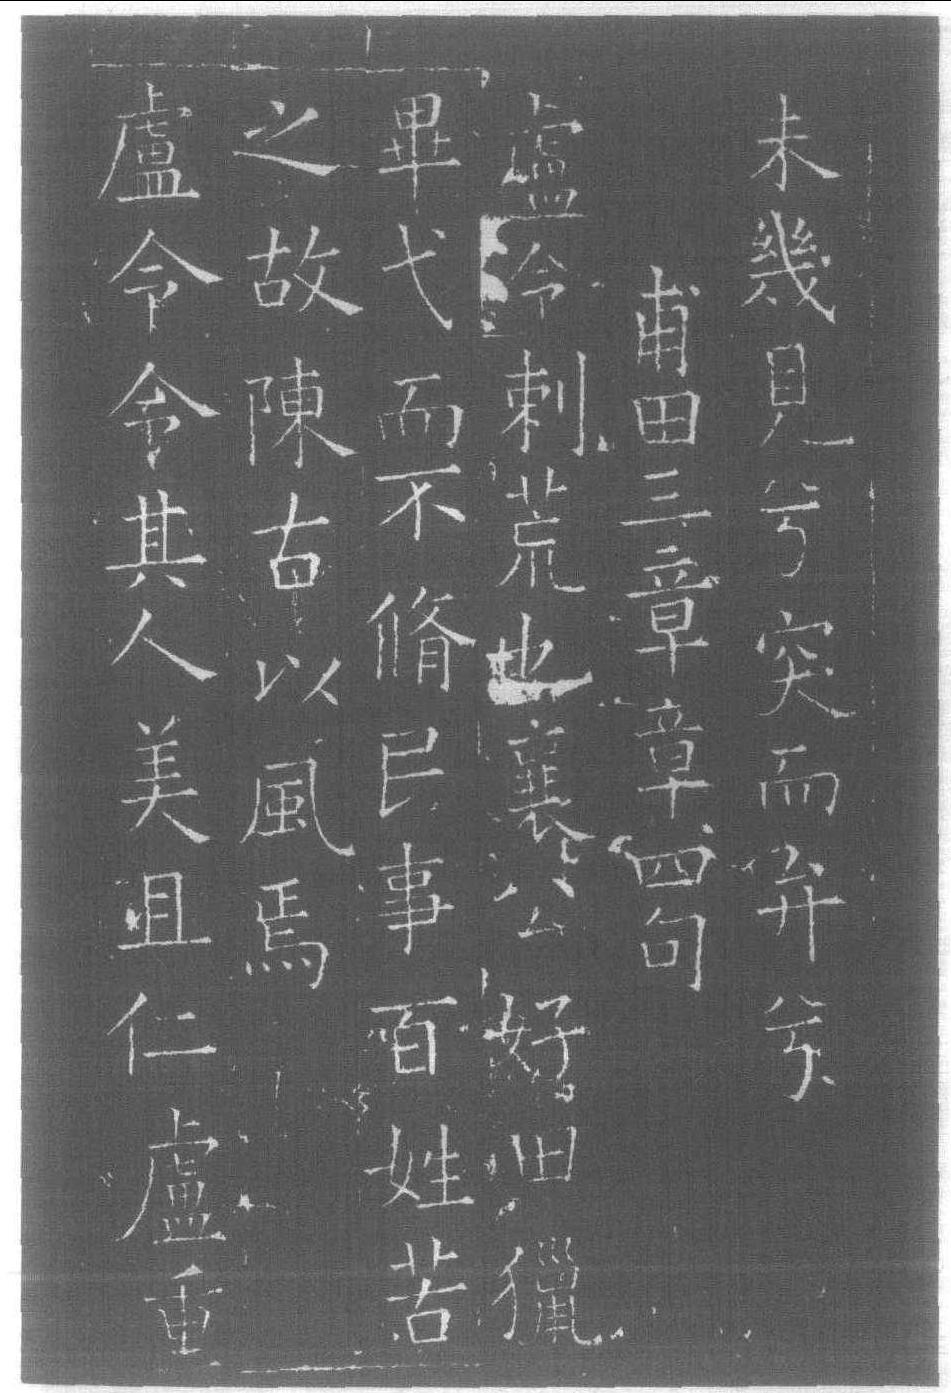 未幾見兮突而弁兮
甫田三章章四句
盧令刺荒也襄公好田獵
畢弋而不脩民事百姓苦
之故陳古以風焉
盧令令其人美且仁盧重